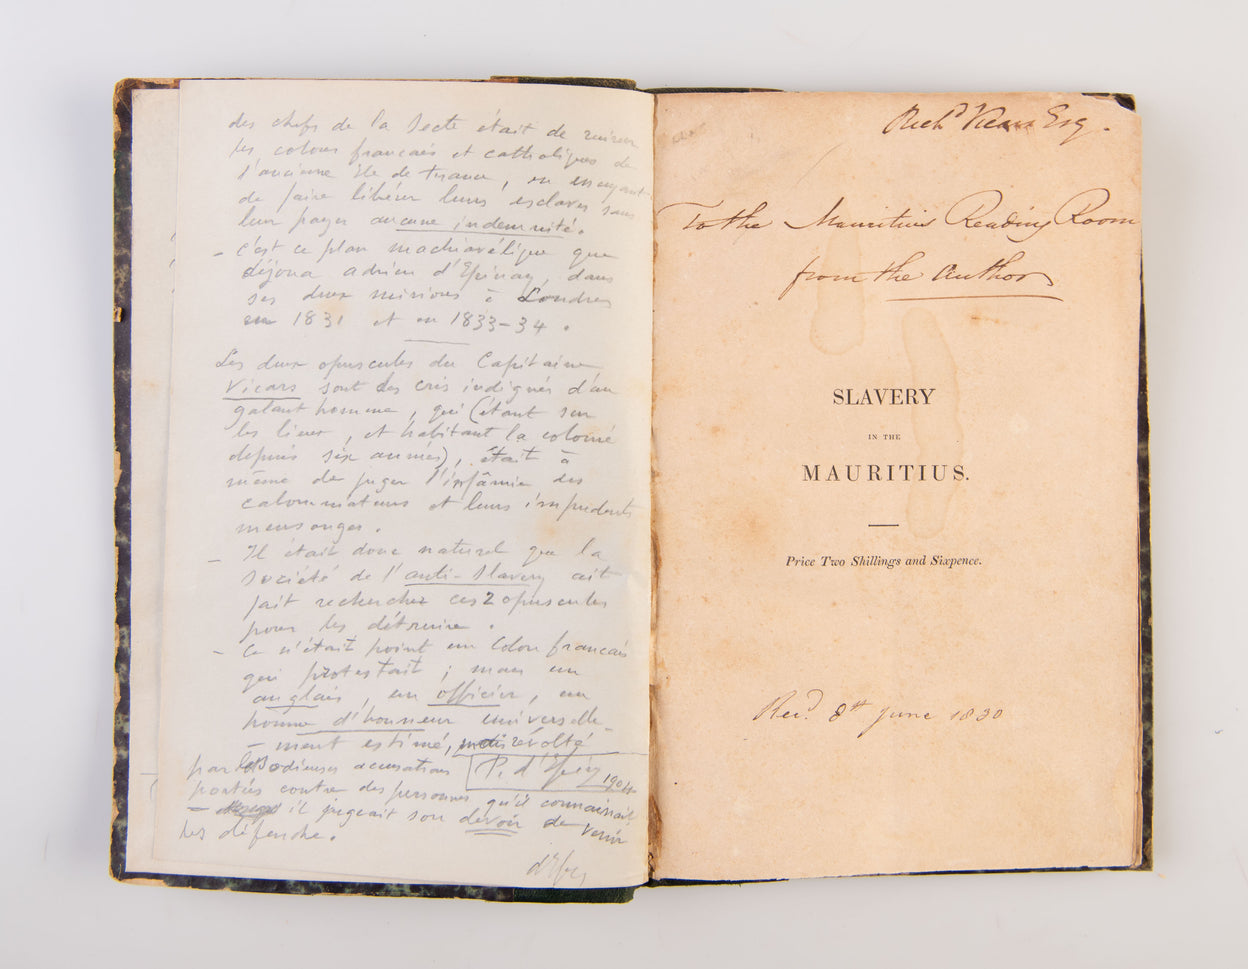 des chefs de la Secte était de ruiner
les colons français et catholiques de
l'ancienne île de France, en essayant
de faire libérer leurs esclaves sans
leur payer aucune indemnité.
- C'est ce plan machiavélique que
déjoua Adrien d'Epinay, dans
ses deux missions à Londres
en 1831 et en 1833-34.
Les deux opuscules du Capitaine
Vicars sont des cris indignés d'un
galant homme, qui (étant sur
les lieux, et habitant la colonie
depuis six années), était à
même de juger l'infâmie des
calomniateurs et leurs impudents
mensonges.
- Il était donc naturel que la
Société de l'anti-Slavery ait
fait rechercher ces 2 opuscules
pour les détruire.
- Ce n'était point un Colon français
qui protestait ; mais un
anglais, un officier, un
homme d'honneur universelle-
-ment estimé, révolté
par les odieuses accusations
P. d'Epinay 1904
portées contre des personnes qu'il connaissait
- il jugeait son devoir de venir
les défendre.
Richd Vicars Esq.
To the Mauritius Reading Room
from the Author
SLAVERY
IN THE
MAURITIUS.
Price Two Shillings and Sixpence.
Recd. 8th June 1830